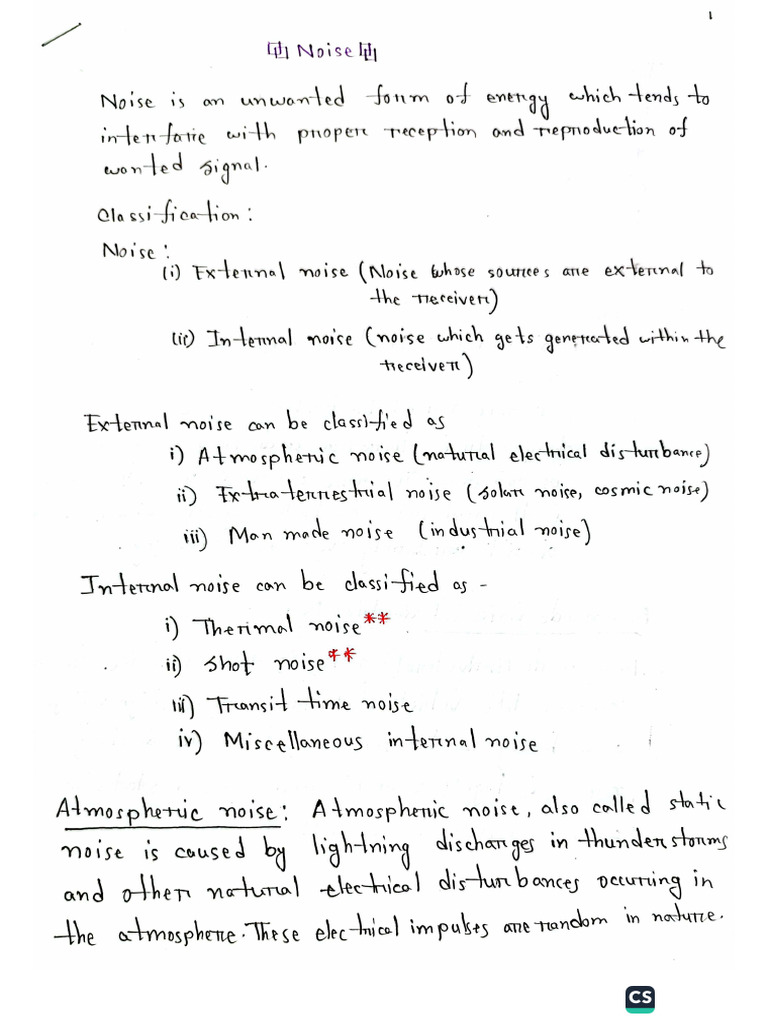 1
Noise
Noise is an unwanted form of energy which tends to
interfare with proper reception and reproduction of
wanted signal.
Classification:
Noise:
(i) External noise (Noise whose sources are external to
the receiver)
(ii) Internal noise (noise which gets generated within the
receiver)
External noise can be classified as
i) Atmospheric noise (natural electrical disturbance)
ii) Extraterrestrial noise (solar noise, cosmic noise)
iii) Man made noise (industrial noise)
Internal noise can be classified as -
i) Thermal noise**
ii) Shot noise**
iii) Transit time noise
iv) Miscellaneous internal noise
Atmospheric noise: Atmospheric noise, also called static
noise is caused by lightning discharges in thunderstorms
and other natural electrical disturbances occuring in
the atmosphere. These electrical impulses are random in nature.
CS